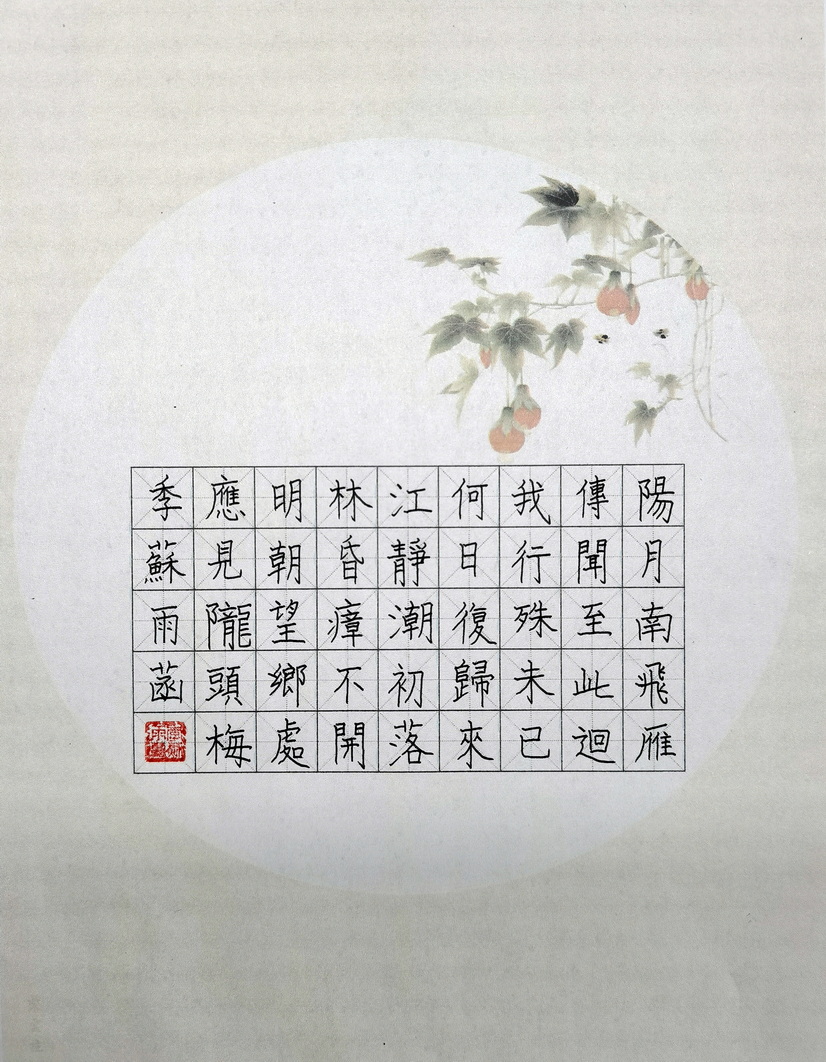 陽月南飛雁
傳聞至此迴
我行殊未已
何日復歸來
江靜潮初落
林昏瘴不開
明朝望鄉處
應見隴頭梅
季蘇雨菡